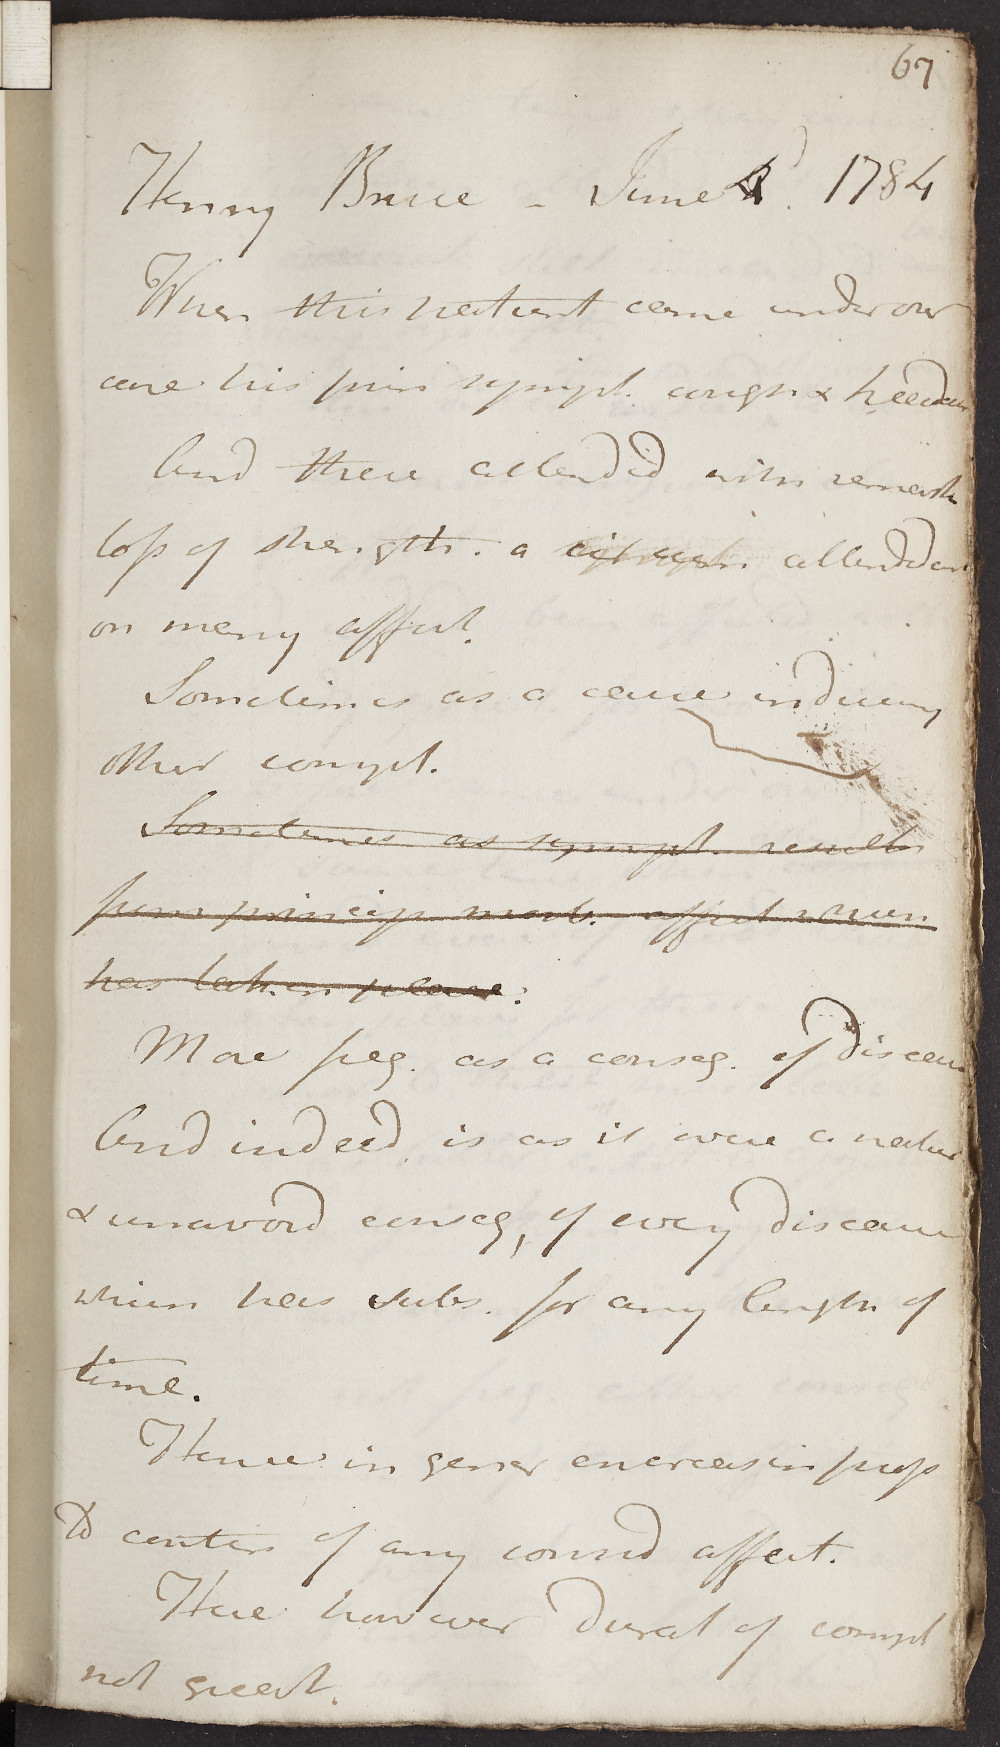 67
Henry Bruce - June 1784
When this patient came under our
care his prin sympt. cough &
And these attended with remark
loss of strength. a attendant
on many affect.
Sometimes as a cause inducing
other compt.
Sometimes as sympt. results
from princip morb. affect when
has taken place:
More freq. as a conseq. of disease
And indeed is as it were a natur
& unavoid conseq, of every disease
which has subs. for any length of
time.
Hence in gener encreases in prop
to contin of any consid affect.
Here however durat of compt
not great.